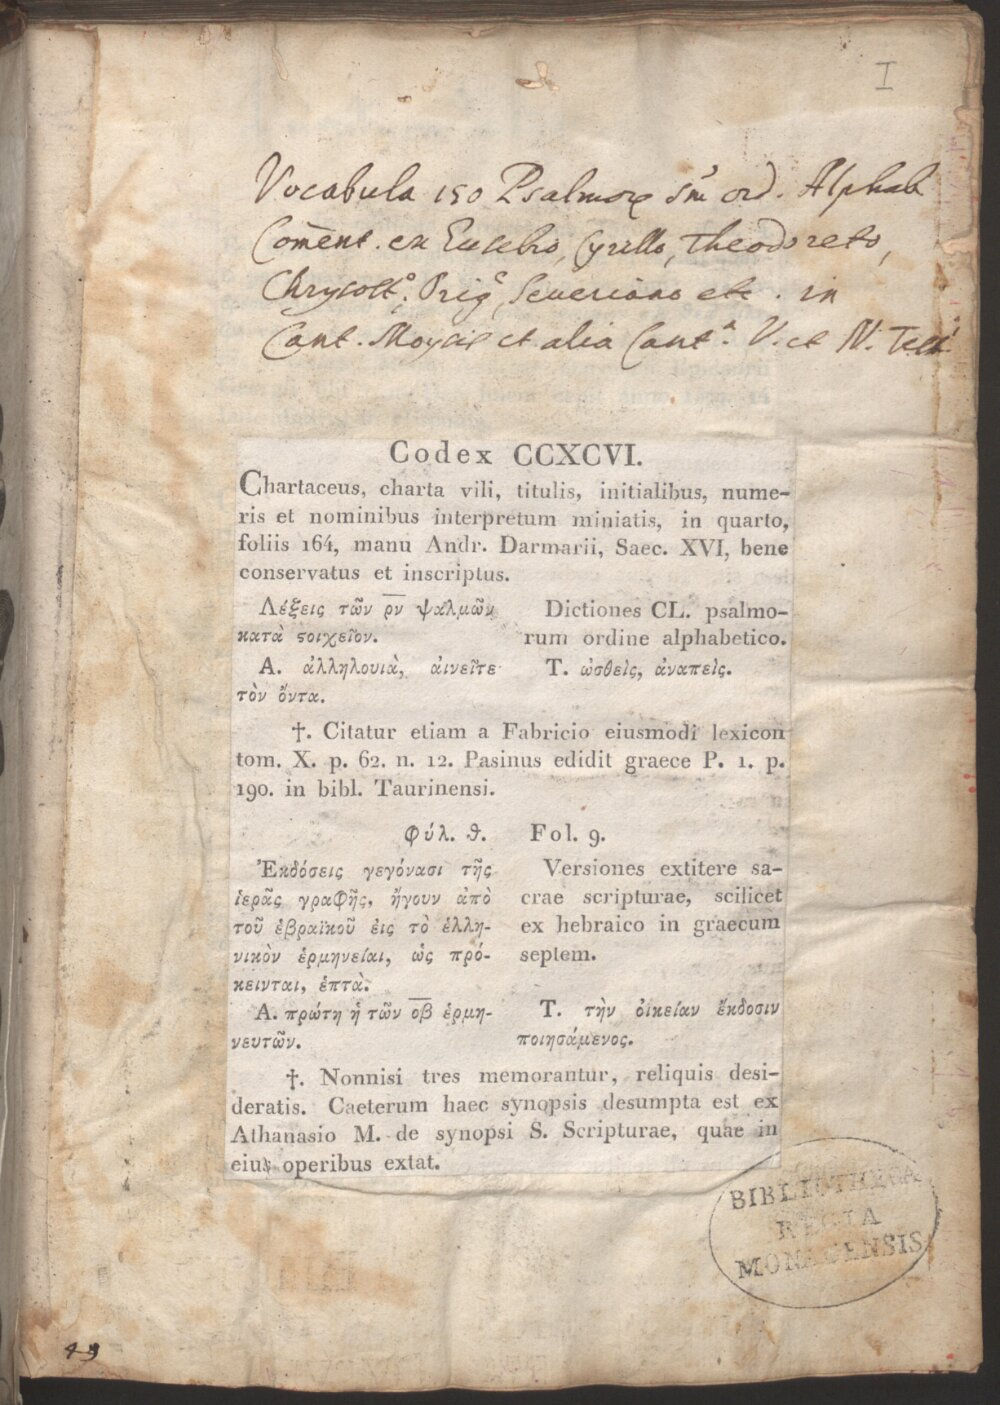 I
Vocabula 150 Psalmoꝝ sm̃ ord. Alphab
Com̃ent. ex Eusebio, Cyrillo, Theodoreto,
Chrysostº. Origº, Seueriano etc. in
Cant. Moysis et alia Cantª. V. et N. Testi
Codex CCXCVI.
Chartaceus, charta vili, titulis, initialibus, nume-
ris et nominibus interpretum miniatis, in quarto,
foliis 164, manu Andr. Darmarii, Saec. XVI, bene
conservatus et inscriptus.
Λέξεις τῶν ρ̅ν̅ ψαλμῶν
κατὰ ϛοιχεῖον.
Α. ἀλληλουιὰ, ἀινεῖτε
τὸν ὄντα.
Dictiones CL. psalmo-
rum ordine alphabetico.
T. ὠσθεὶς, ἀναπεὶς.
†. Citatur etiam a Fabricio eiusmodi lexicon
tom. X. p. 62. n. 12. Pasinus edidit graece P. 1. p.
190. in bibl. Taurinensi.
Φύλ. ϑ.
Ἐκδόσεις γεγόνασι τῆς
ἱερᾶς γραφῆς, ἤγουν ἀπὸ
τοῦ ἑβραϊκοῦ ἐις τὸ ἑλλη-
νικὸν ἑρμηνείαι, ὡς πρό-
κεινται, ἑπτὰ.
Α. πρώτη ἡ τῶν ο̅β̅ ἑρμη-
νευτῶν.
Fol. 9.
Versiones extitere sa-
crae scripturae, scilicet
ex hebraico in graecum
septem.
T. τὴν ὀικείαν ἔκδοσιν
ποιησάμενος.
†. Nonnisi tres memorantur, reliquis desi-
deratis. Caeterum haec synopsis desumpta est ex
Athanasio M. de synopsi S. Scripturae, quae in
eius operibus extat.
BIBLIOTHECA
REGIA
MONACENSIS
49